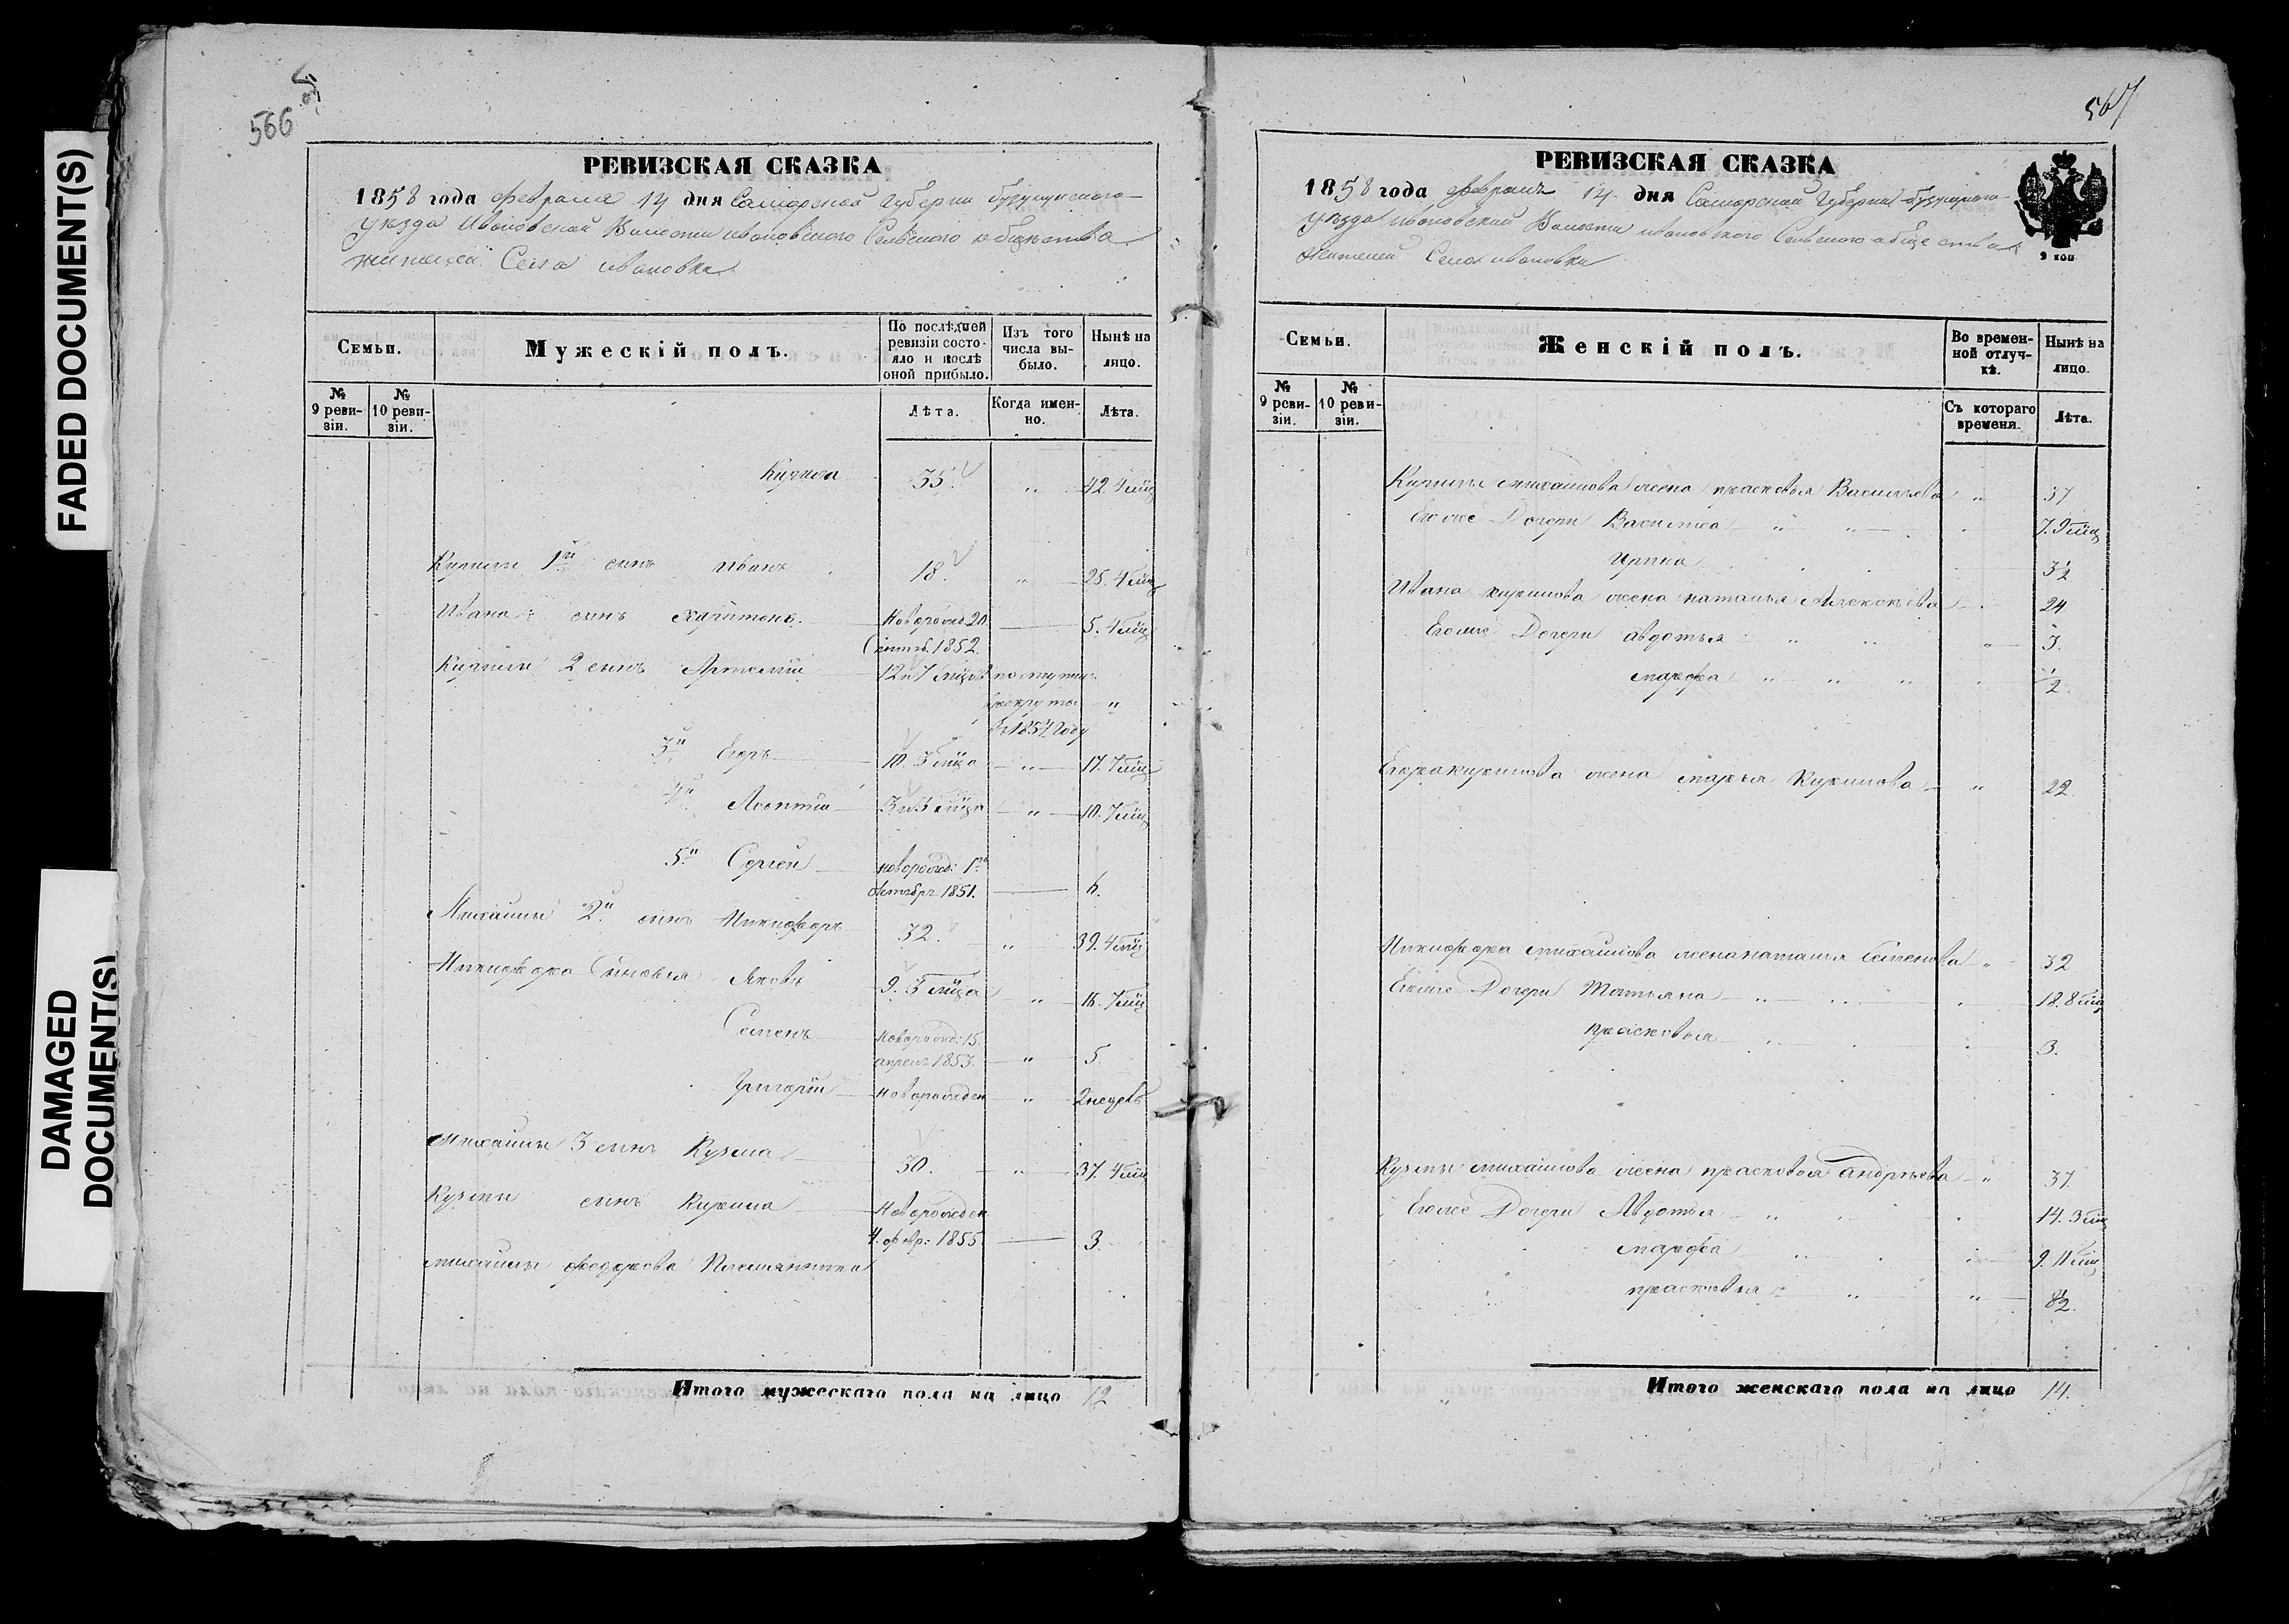 FADED DOCUMENT(S)
DAMAGED
DOCUMENT(S)
566 об
РЕВИЗСКАЯ СКАЗКА
1858 года февраля 14 дня Самарской Губерни бузулукского
уезда Ивановской Волости ивановского Сельского общества
жителей Села ивановки
Семьи.
Мужескій полъ.
По послѣдней
ревизіи состо-
яло и послѣ
оной прибыло.
Изъ того
числа вы-
было.
Нынѣ на
лицо.
№
9 реви-
зіи.
№
10 реви-
зіи.
Лѣта.
Когда имен-
но.
Лѣта.
Кирила 35. „ 42. 4 мѣц
Кирилы 1й сынъ Иванъ 18. „ 25. 4 мѣц
Ивана: сынъ Харитонъ. Новорожд 20
Сентяб. 1852. 5. 4 мѣц
Кирилы 2 сынъ Артемий 12 и 7 мѣцов поступил
врекруты „
въ 1854 году
3й Егоръ 10. 3 мѣца „ 17. 7 мѣц
4й Леонтий 3 и 3 мѣца „ 10. 7 мѣц
5й Сергей новорожд: 1го
октября 1851. 6.
Михайлы 2й сынъ Никифоръ 32. „ 39. 4 мѣц
Никифора Сыновья Яковъ 9. 3 мѣца „ 16. 7 мѣц
Семенъ Новорожд: 15
апреля 1853. „ 5
Григорий Новорожден „ 2 недель
Михайлы 3 сынъ Кузма 30. „ 37. 4 мѣц
Кузмы сынъ Кирила Новорожден
4. февр: 1855. 3.
михайлы федорова Племянники
Итого мужескаго пола на лицо 12
567
РЕВИЗСКАЯ СКАЗКА
1858 года февраля 14 дня Самарской Губерни бузулукского
уезда ивановской Волости ивановского Сельского общества
жителей Села ивановки
9 коп
Семьи.
Женскій полъ.
Во времен-
ной отлуч-
кѣ.
Нынѣ на
лицо.
№
9 реви-
зіи.
№
10 реви-
зіи.
Съ котораго
времени.
Лѣта.
Кирилы михайлова жена прасковья Васильева „ 37
Его же Дочери Василиса „ „ 7. 9 мѣц
Ирина 3 1/2
Ивана кирилова жена наталья Алексеева 24
Его же Дочери авдотья „ „ „ 3.
марфа „ „ „ 1/2
Егора кирилова жена марья Кирилова „ 22.
Никифора михайлова жена наталья Семенова „ 32
Его же Дочери Татьяна „ „ 18. 8 мѣц
прасковья „ 3.
Кузмы михайлова жена прасковья андреева „ 37
Его же Дочери Авдотья „ 14. 3 мѣц
марфа „ 9. 11 мѣц
прасковья „ „ 8 1/2.
Итого женскаго пола на лицо 14.